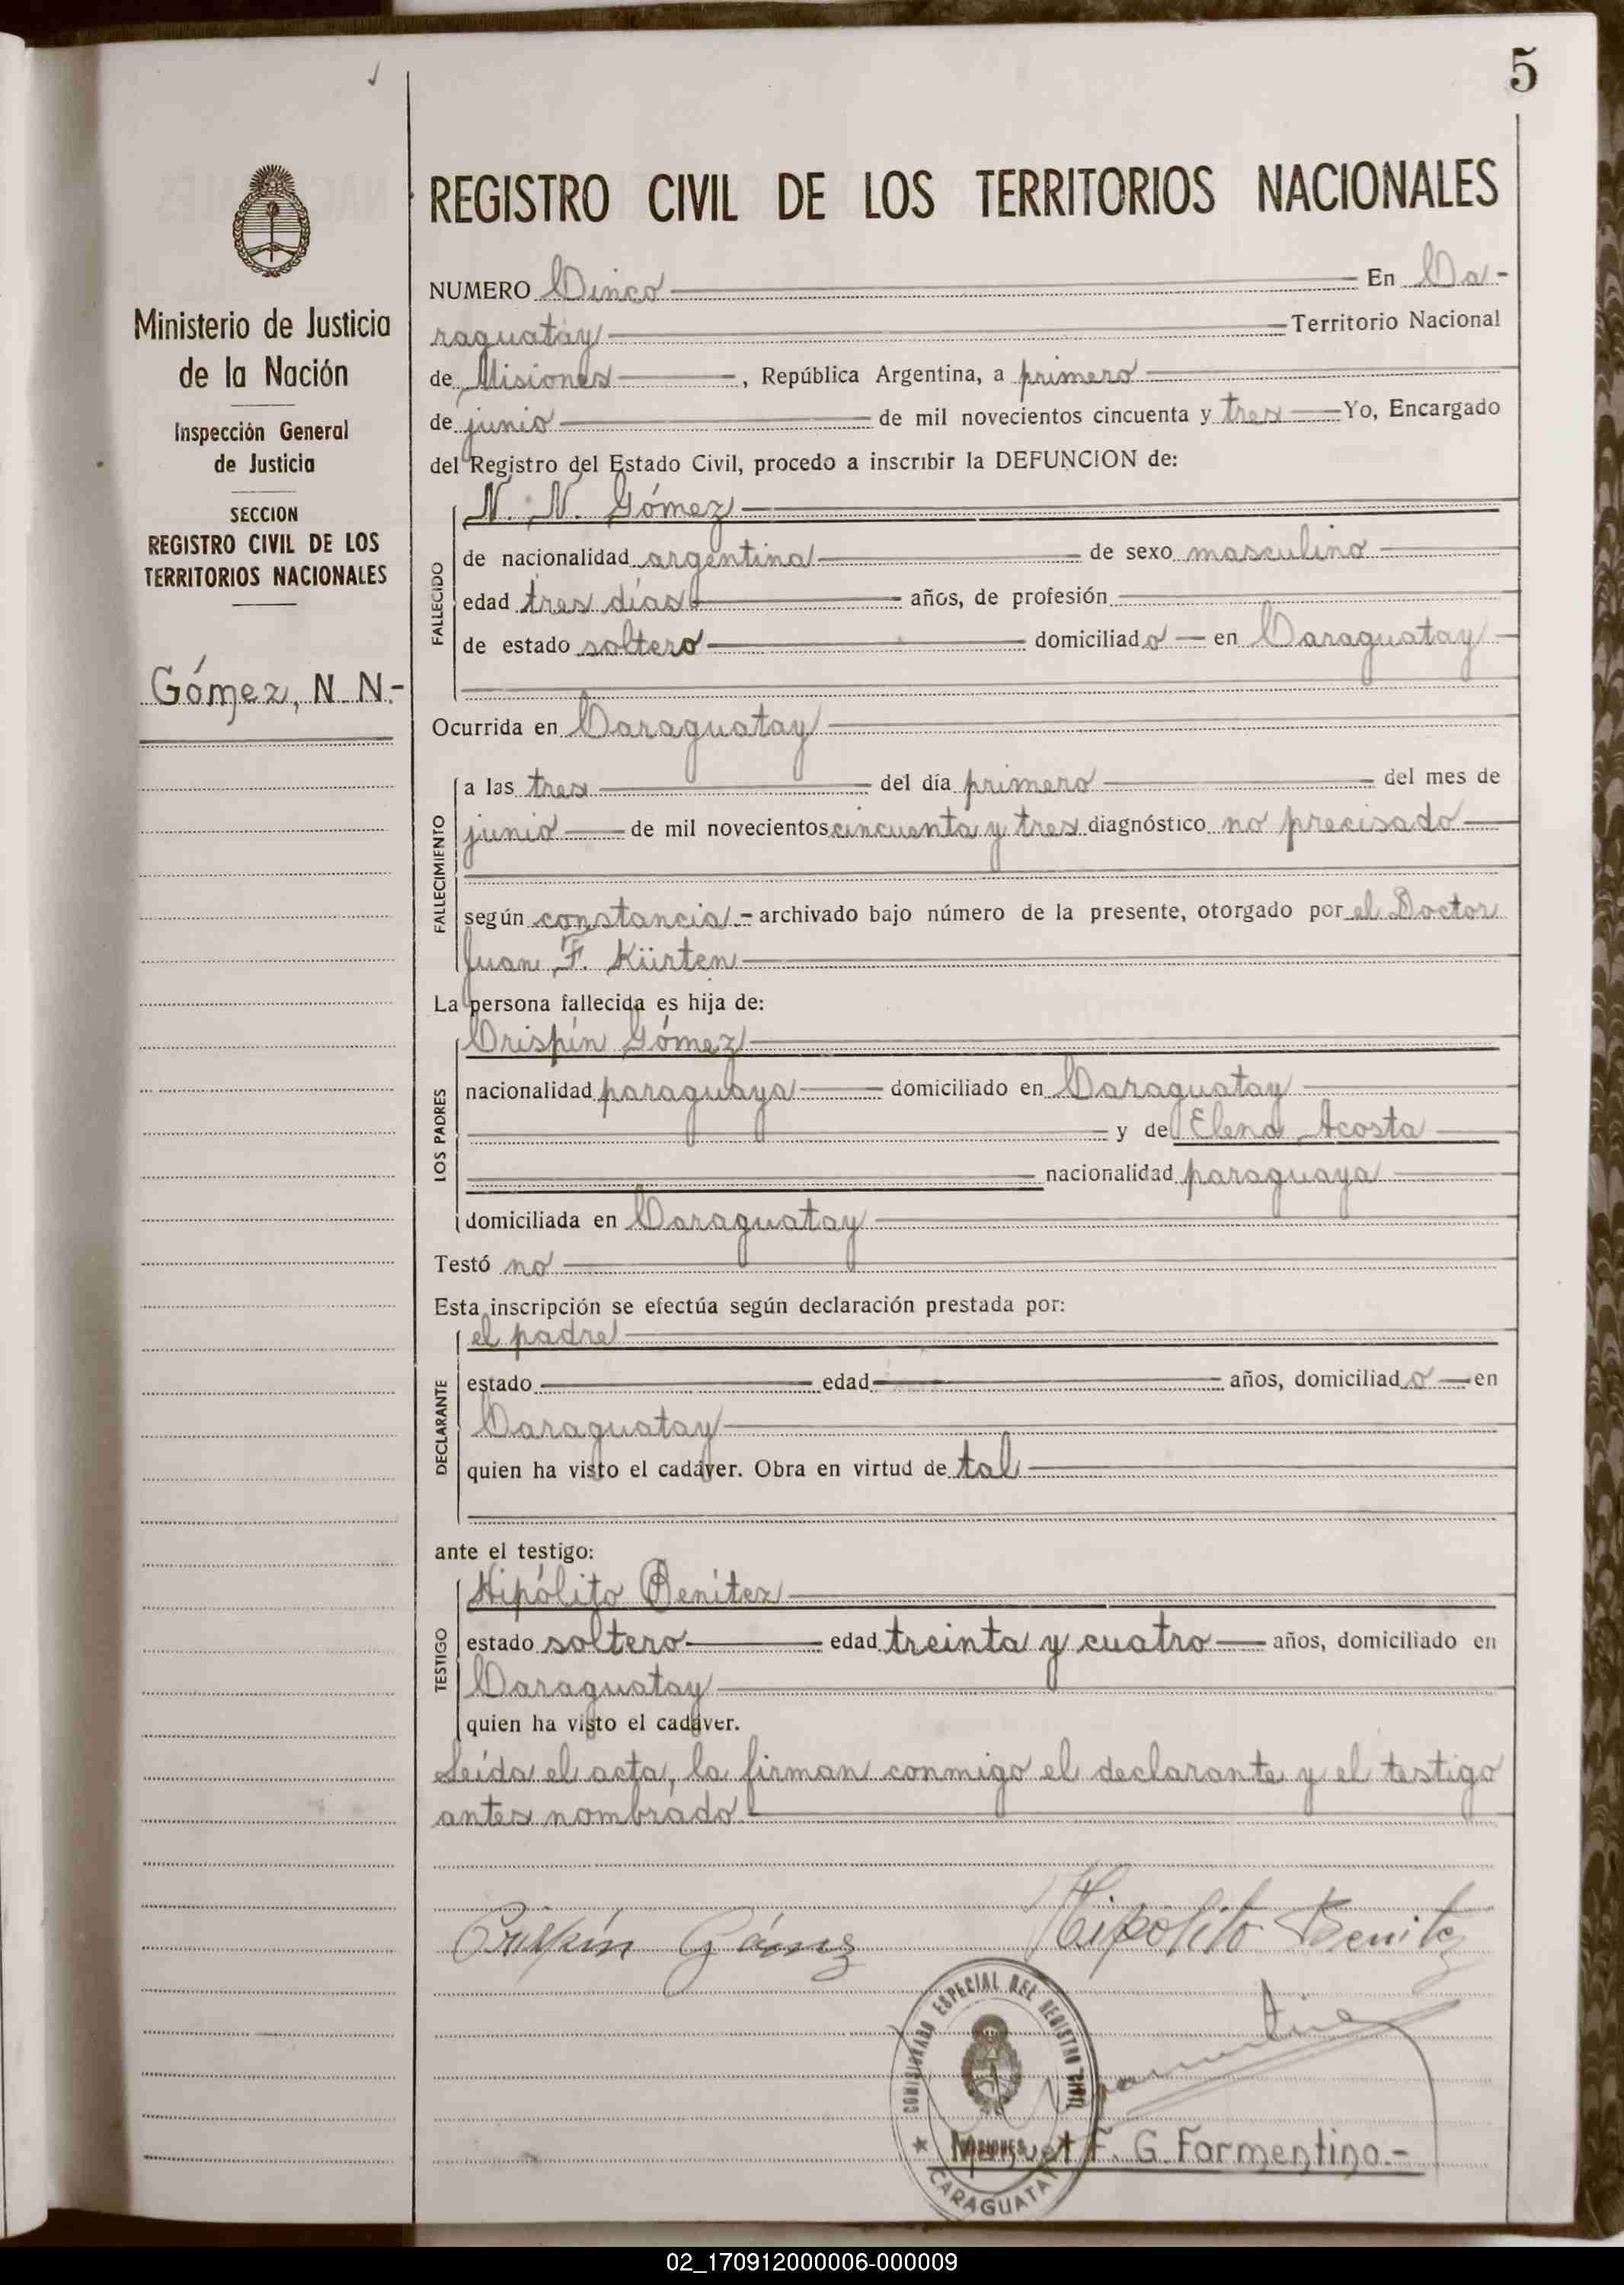 5
REGISTRO CIVIL DE LOS TERRITORIOS NACIONALES
Ministerio de Justicia
de la Nación
Inspección General
de Justicia
SECCION
REGISTRO CIVIL DE LOS
TERRITORIOS NACIONALES
Gómez, N. N.-
NUMERO Cinco En Ca-
raguatay Territorio Nacional
de Misiones, República Argentina, a primero
de junio de mil novecientos cincuenta y tres Yo, Encargado
del Registro del Estado Civil, procedo a inscribir la DEFUNCION de:
FALLECIDO
N. N. Gómez
de nacionalidad argentina de sexo masculino
edad tres días años, de profesión
de estado soltero domiciliado en Caraguatay
Ocurrida en Caraguatay
FALLECIMIENTO
a las tres del día primero del mes de
junio de mil novecientos cincuenta y tres diagnóstico no precisado
según constancia.- archivado bajo número de la presente, otorgado por el Doctor
Juan F. Kürten
La persona fallecida es hija de:
LOS PADRES
Crispín Gómez
nacionalidad paraguaya domiciliado en Caraguatay
y de Elena Acosta
nacionalidad paraguaya
domiciliada en Caraguatay
Testó no
Esta inscripción se efectúa según declaración prestada por:
DECLARANTE
el padre
estado edad años, domiciliado en
Caraguatay
quien ha visto el cadáver. Obra en virtud de tal
ante el testigo:
TESTIGO
Hipólito Benítez
estado soltero edad treinta y cuatro años, domiciliado en
Caraguatay
quien ha visto el cadáver.
Leída el acta, la firman conmigo el declarante y el testigo
antes nombrado
Crispín Gómez
Hipólito Benitez
COMISIONADO ESPECIAL DEL REGISTRO CIVIL
MISIONES
CARAGUATAY
Manuel F. G. Formentino.-
02_170912000006-000009